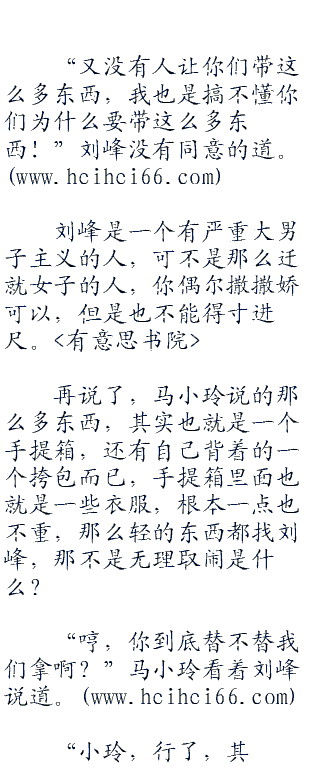 “又没有人让你们带这
么多东西，我也是搞不懂你
们为什么要带这么多东
西！”刘峰没有同意的道。
(www.hcihci66.com)
刘峰是一个有严重大男
子主义的人，可不是那么迁
就女子的人，你偶尔撒撒娇
可以，但是也不能得寸进
尺。<有意思书院>
再说了，马小玲说的那
么多东西，其实也就是一个
手提箱，还有自己背着的一
个挎包而已，手提箱里面也
就是一些衣服，根本一点也
不重，那么轻的东西都找刘
峰，那不是无理取闹是什
么？
“哼，你到底替不替我
们拿啊？”马小玲看着刘峰
说道。(www.hcihci66.com)
“小玲，行了，其